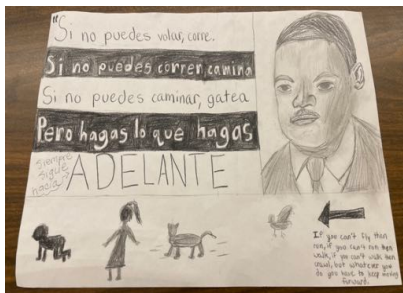 "Si no puedes volar, corre.
Si no puedes correr, camina
Si no puedes caminar, gatea
Pero hagas lo que hagas
siempre
sigue
hacia
ADELANTE
If you can't fly then
run, if you can't run then
walk, if you can't walk then
crawl, but whatever you
do you have to keep moving
forward.